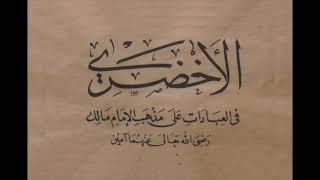 الأخضري
في العبادات على مذهب الإمام مالك
رضي الله تعالى عنهما آمين